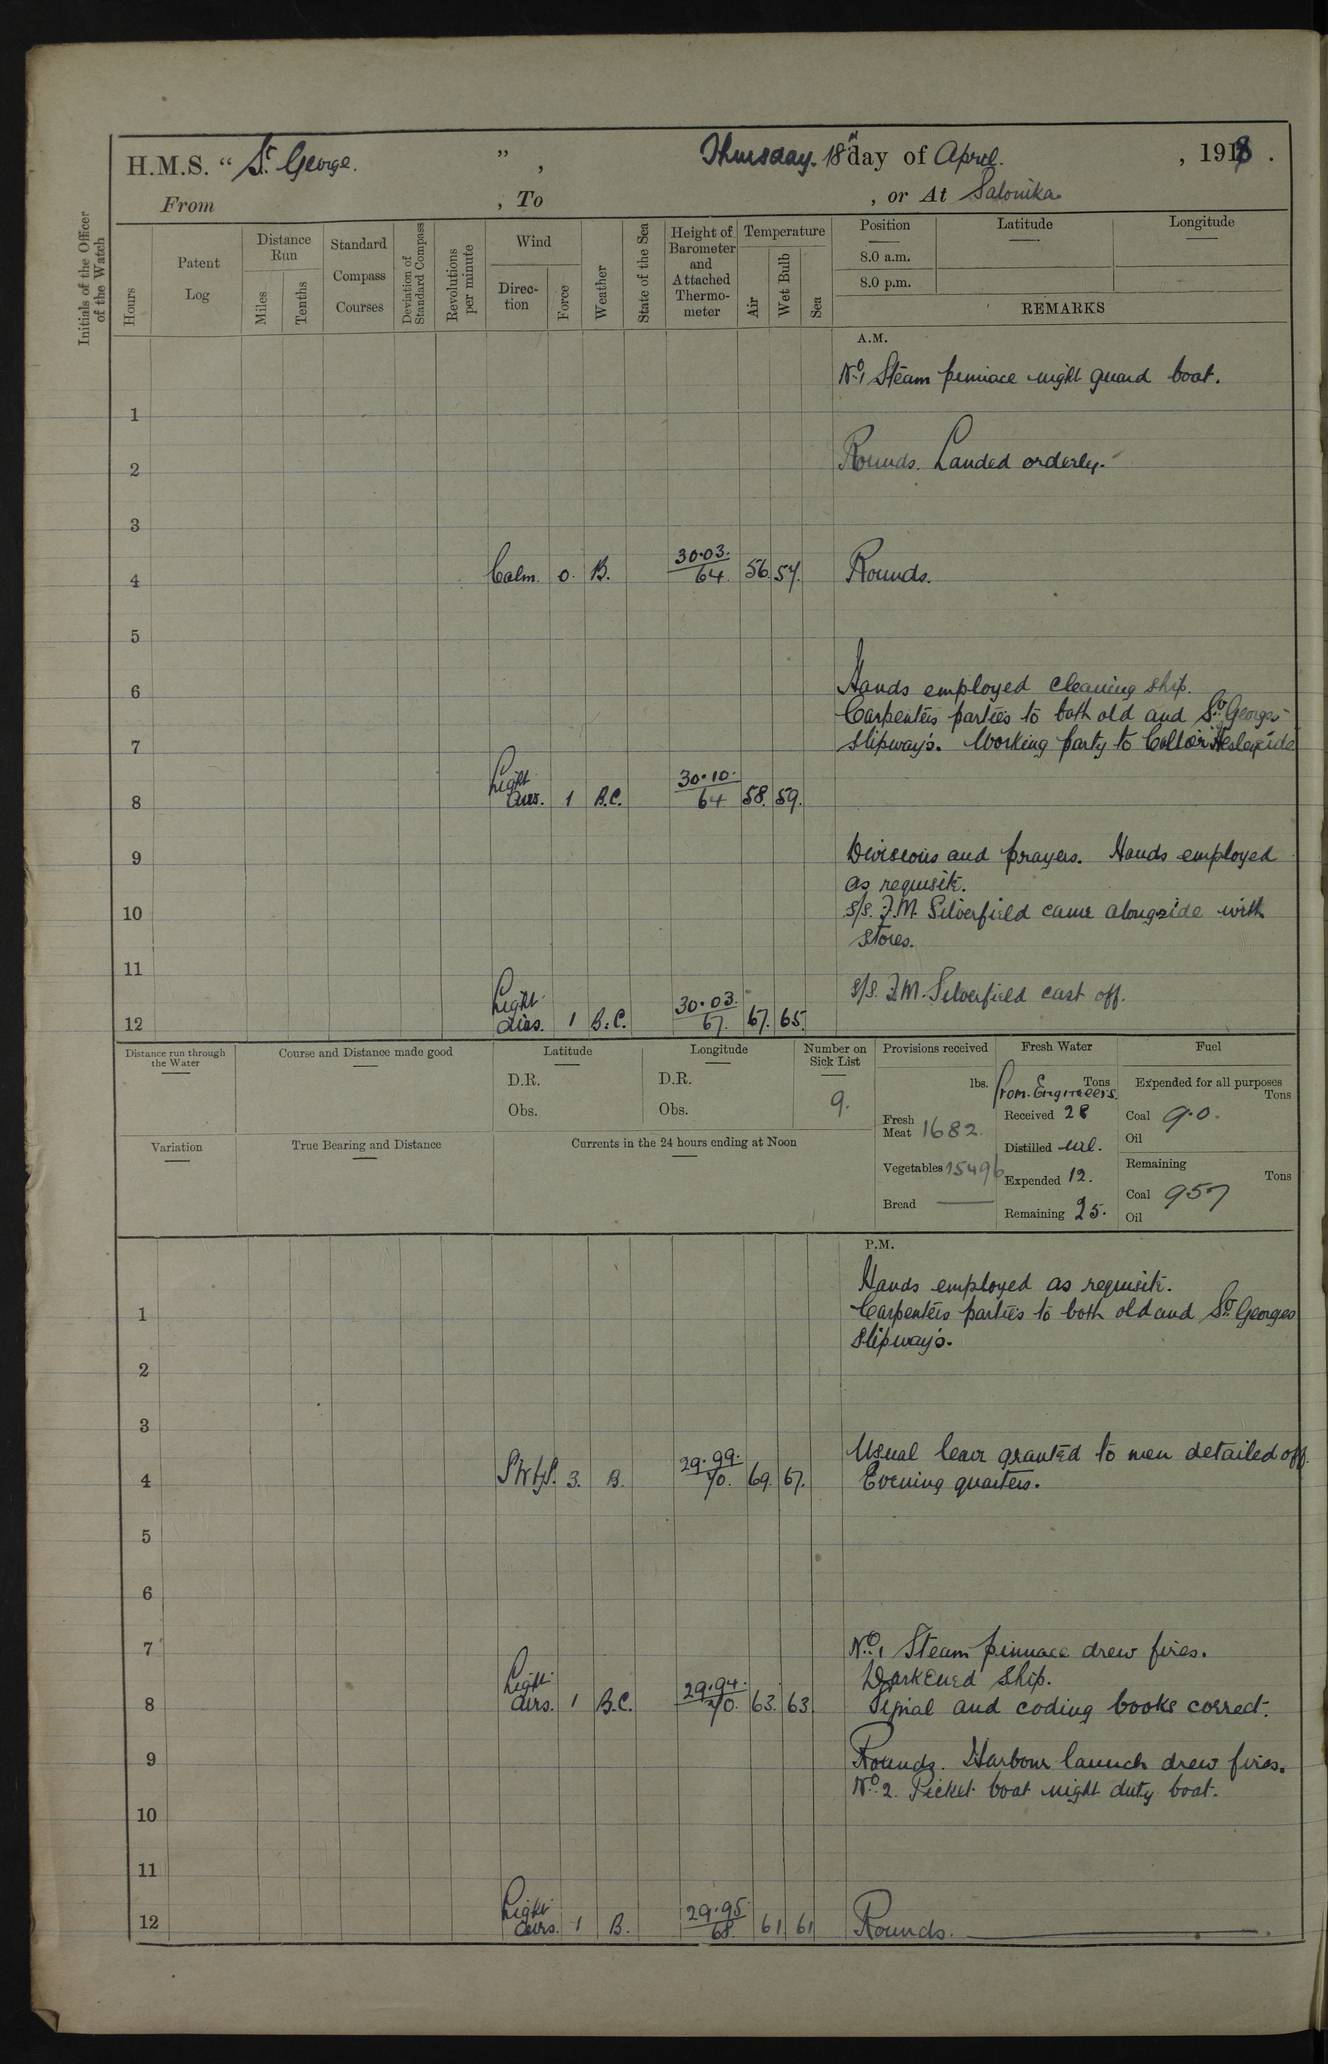 H.M.S. “ St. George. ” , Thursday. 18th day of April. , 1918 .
From , To , or At Salonika
Initials of the Officer of the Watch
Hours
Patent Log
Distance Run
Miles
Tenths
Standard Compass Courses
Deviation of Standard Compass
Revolutions per minute
Wind
Direction
Force
Weather
State of the Sea
Height of Barometer and Attached Thermometer
Temperature
Air
Wet Bulb
Sea
Position Latitude Longitude
8.0 a.m.
8.0 p.m.
REMARKS
A.M.
No. 1 Steam pinnace night guard boat.
1
Rounds. Landed orderly.
2
3
4 Calm. 0. B. 30.03. 64. 56. 54. Rounds.
5
6 Hands employed cleaning ship.
Carpenters parties to both old and St. Georges
7 slipways. Working party to Collier
8 Light airs. 1 B.C. 30.10. 64 58. 59.
9 Divisions and prayers. Hands employed
as requisite.
10 s/s. F.M. Silverfield came alongside with
stores.
11
s/s. F.M. Silverfield cast off.
12 Light airs. 1 B.C. 30.03. 67. 67. 65.
Distance run through the Water
Course and Distance made good
Latitude
D.R.
Obs.
Longitude
D.R.
Obs.
Number on Sick List
9.
Provisions received
lbs.
Fresh Meat 1682.
Vegetables 15496
Bread —
Fresh Water
Tons
from Engineers.
Received 28
Distilled nil.
Expended 12.
Remaining 25.
Fuel
Expended for all purposes
Tons
Coal 9.0.
Oil
Remaining
Tons
Coal 957
Oil
Variation
True Bearing and Distance
Currents in the 24 hours ending at Noon
P.M.
Hands employed as requisite.
1 Carpenters parties to both old and St. Georges
slipways.
2
3
Usual leave granted to men detailed off.
4 SWbyS. 3. B. 29.99. 70. 69. 67. Evening quarters.
5
6
7 No. 1 Steam pinnace drew fires.
Darkened ship.
8 Light airs. 1 B.C. 29.94. 70. 63. 63. Signal and coding books correct.
9 Rounds. Harbour launch drew fires.
No. 2. Picket boat night duty boat.
10
11
12 Light airs. 1 B. 29.95 68. 61 61 Rounds.